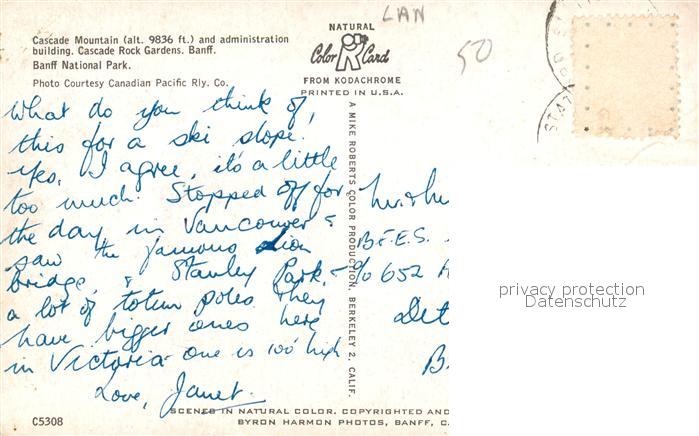 LAN
50
NATURAL
Color Card
FROM KODACHROME
PRINTED IN U.S.A.
Cascade Mountain (alt. 9836 ft.) and administration
building. Cascade Rock Gardens. Banff.
Banff National Park.
Photo Courtesy Canadian Pacific Rly. Co.
What do you think of,
this for a ski slope.
Yes, I agree, it's a little
too much. Stopped off for
the day in Vancouver &
saw the famous Lion
bridge, & Stanley Park, -
a lot of totem poles They
have bigger ones here
in Victoria - one is 100' high
Love, Janet.
A MIKE ROBERTS COLOR PRODUCTION, BERKELEY 2, CALIF.
Mr. &
B.F.E.S.
c/o 652
Det
B.
privacy protection
Datenschutz
C5308
SCENES IN NATURAL COLOR. COPYRIGHTED AND
BYRON HARMON PHOTOS, BANFF, C